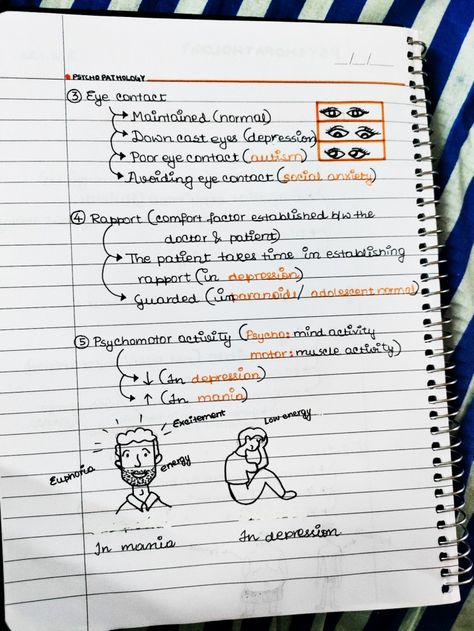 PSYCHO PATHOLOGY
③ Eye contact
Maintained (normal)
Down cast eyes (depression)
Poor eye contact (autism)
Avoiding eye contact (social anxiety)
④ Rapport (comfort factor established b/w the
doctor & patient)
The patient takes time in establishing
rapport (in depression)
Guarded (in paranoids/ adolescent normal)
⑤ Psychomotor activity (Psycho: mind activity
motor: muscle activity)
↓ (In depression)
↑ (In mania)
Excitement
Low energy
Euphoria
energy
In mania
In depression